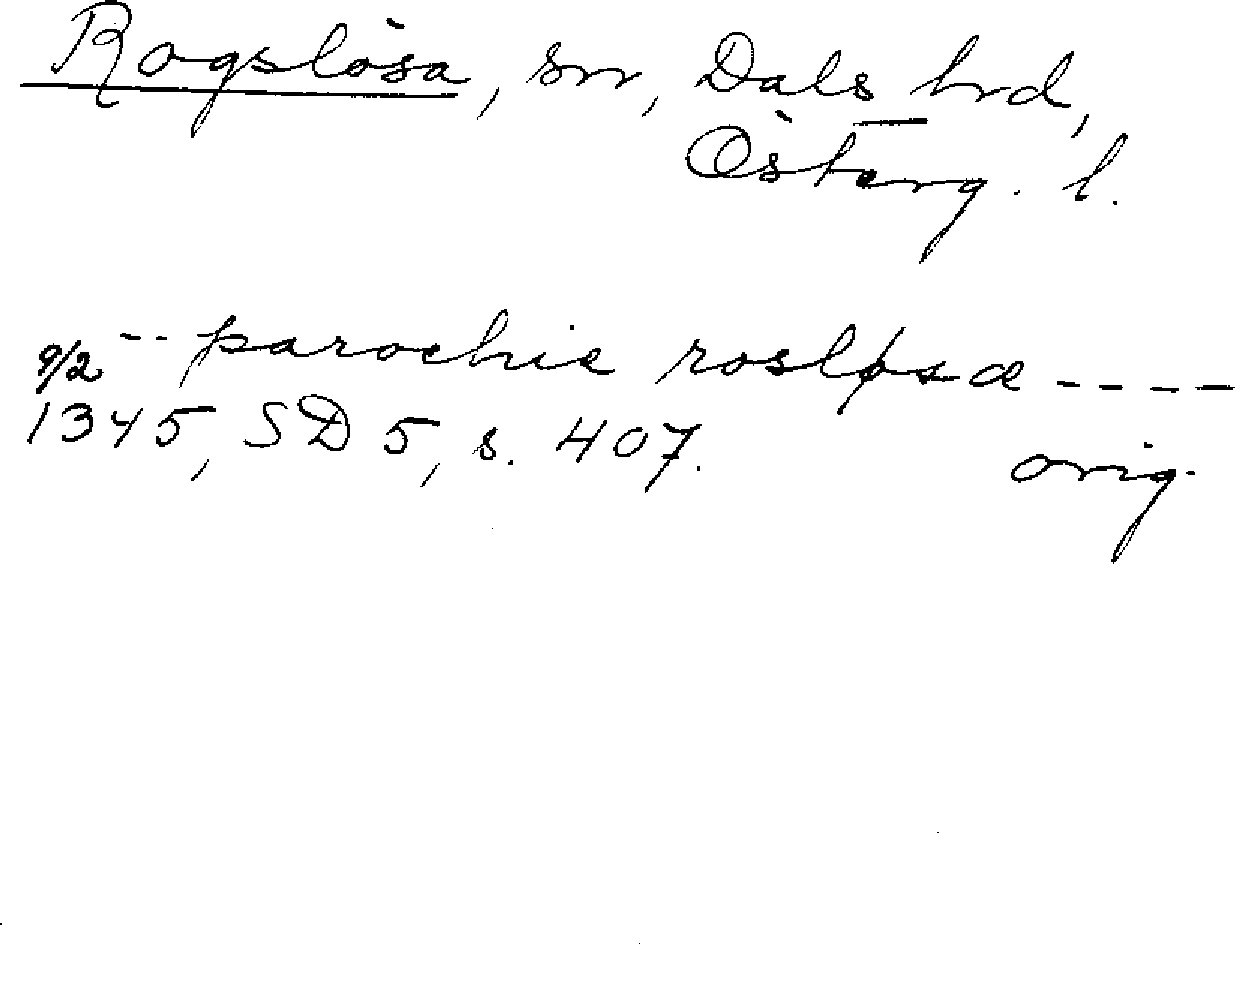 Rogslösa, sn, Dals hrd,
Österg. l.
9/2 -- parochie rosløsæ ----
1345, SD 5, s. 407.
orig.